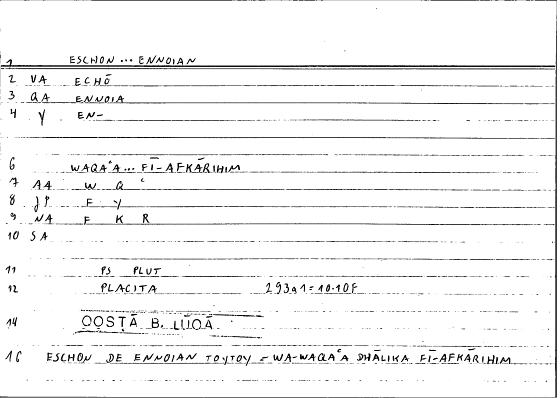 1 ESCHON ... ENNOIAN
2 VA ECHŌ
3 QA ENNOIA
4 Y EN-
6 WAQAʿA ... FĪ-AFKĀRIHIM
7 AA W Q ʿ
8 JP F Y
9 NA F K R
10 SA
11 PS PLUT
12 PLACITA 293a1=10-10F
14 QOSṬĀ B. LŪQĀ
16 ESCHON DE ENNOIAN TOYTOY = WA-WAQAʿA DHĀLIKA FĪ-AFKĀRIHIM